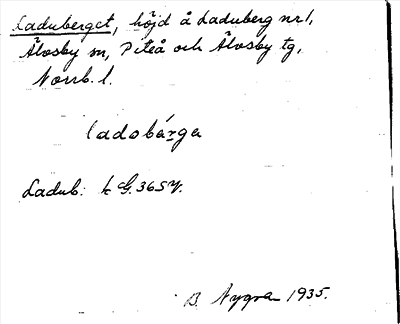 Laduberget, höjd å Laduberg nr 1,
Älvsby sn, Piteå och Älvsby tg,
Norrb. l.
ladobárga
Ladub: k G. 365 y.
B. Nygren 1935.